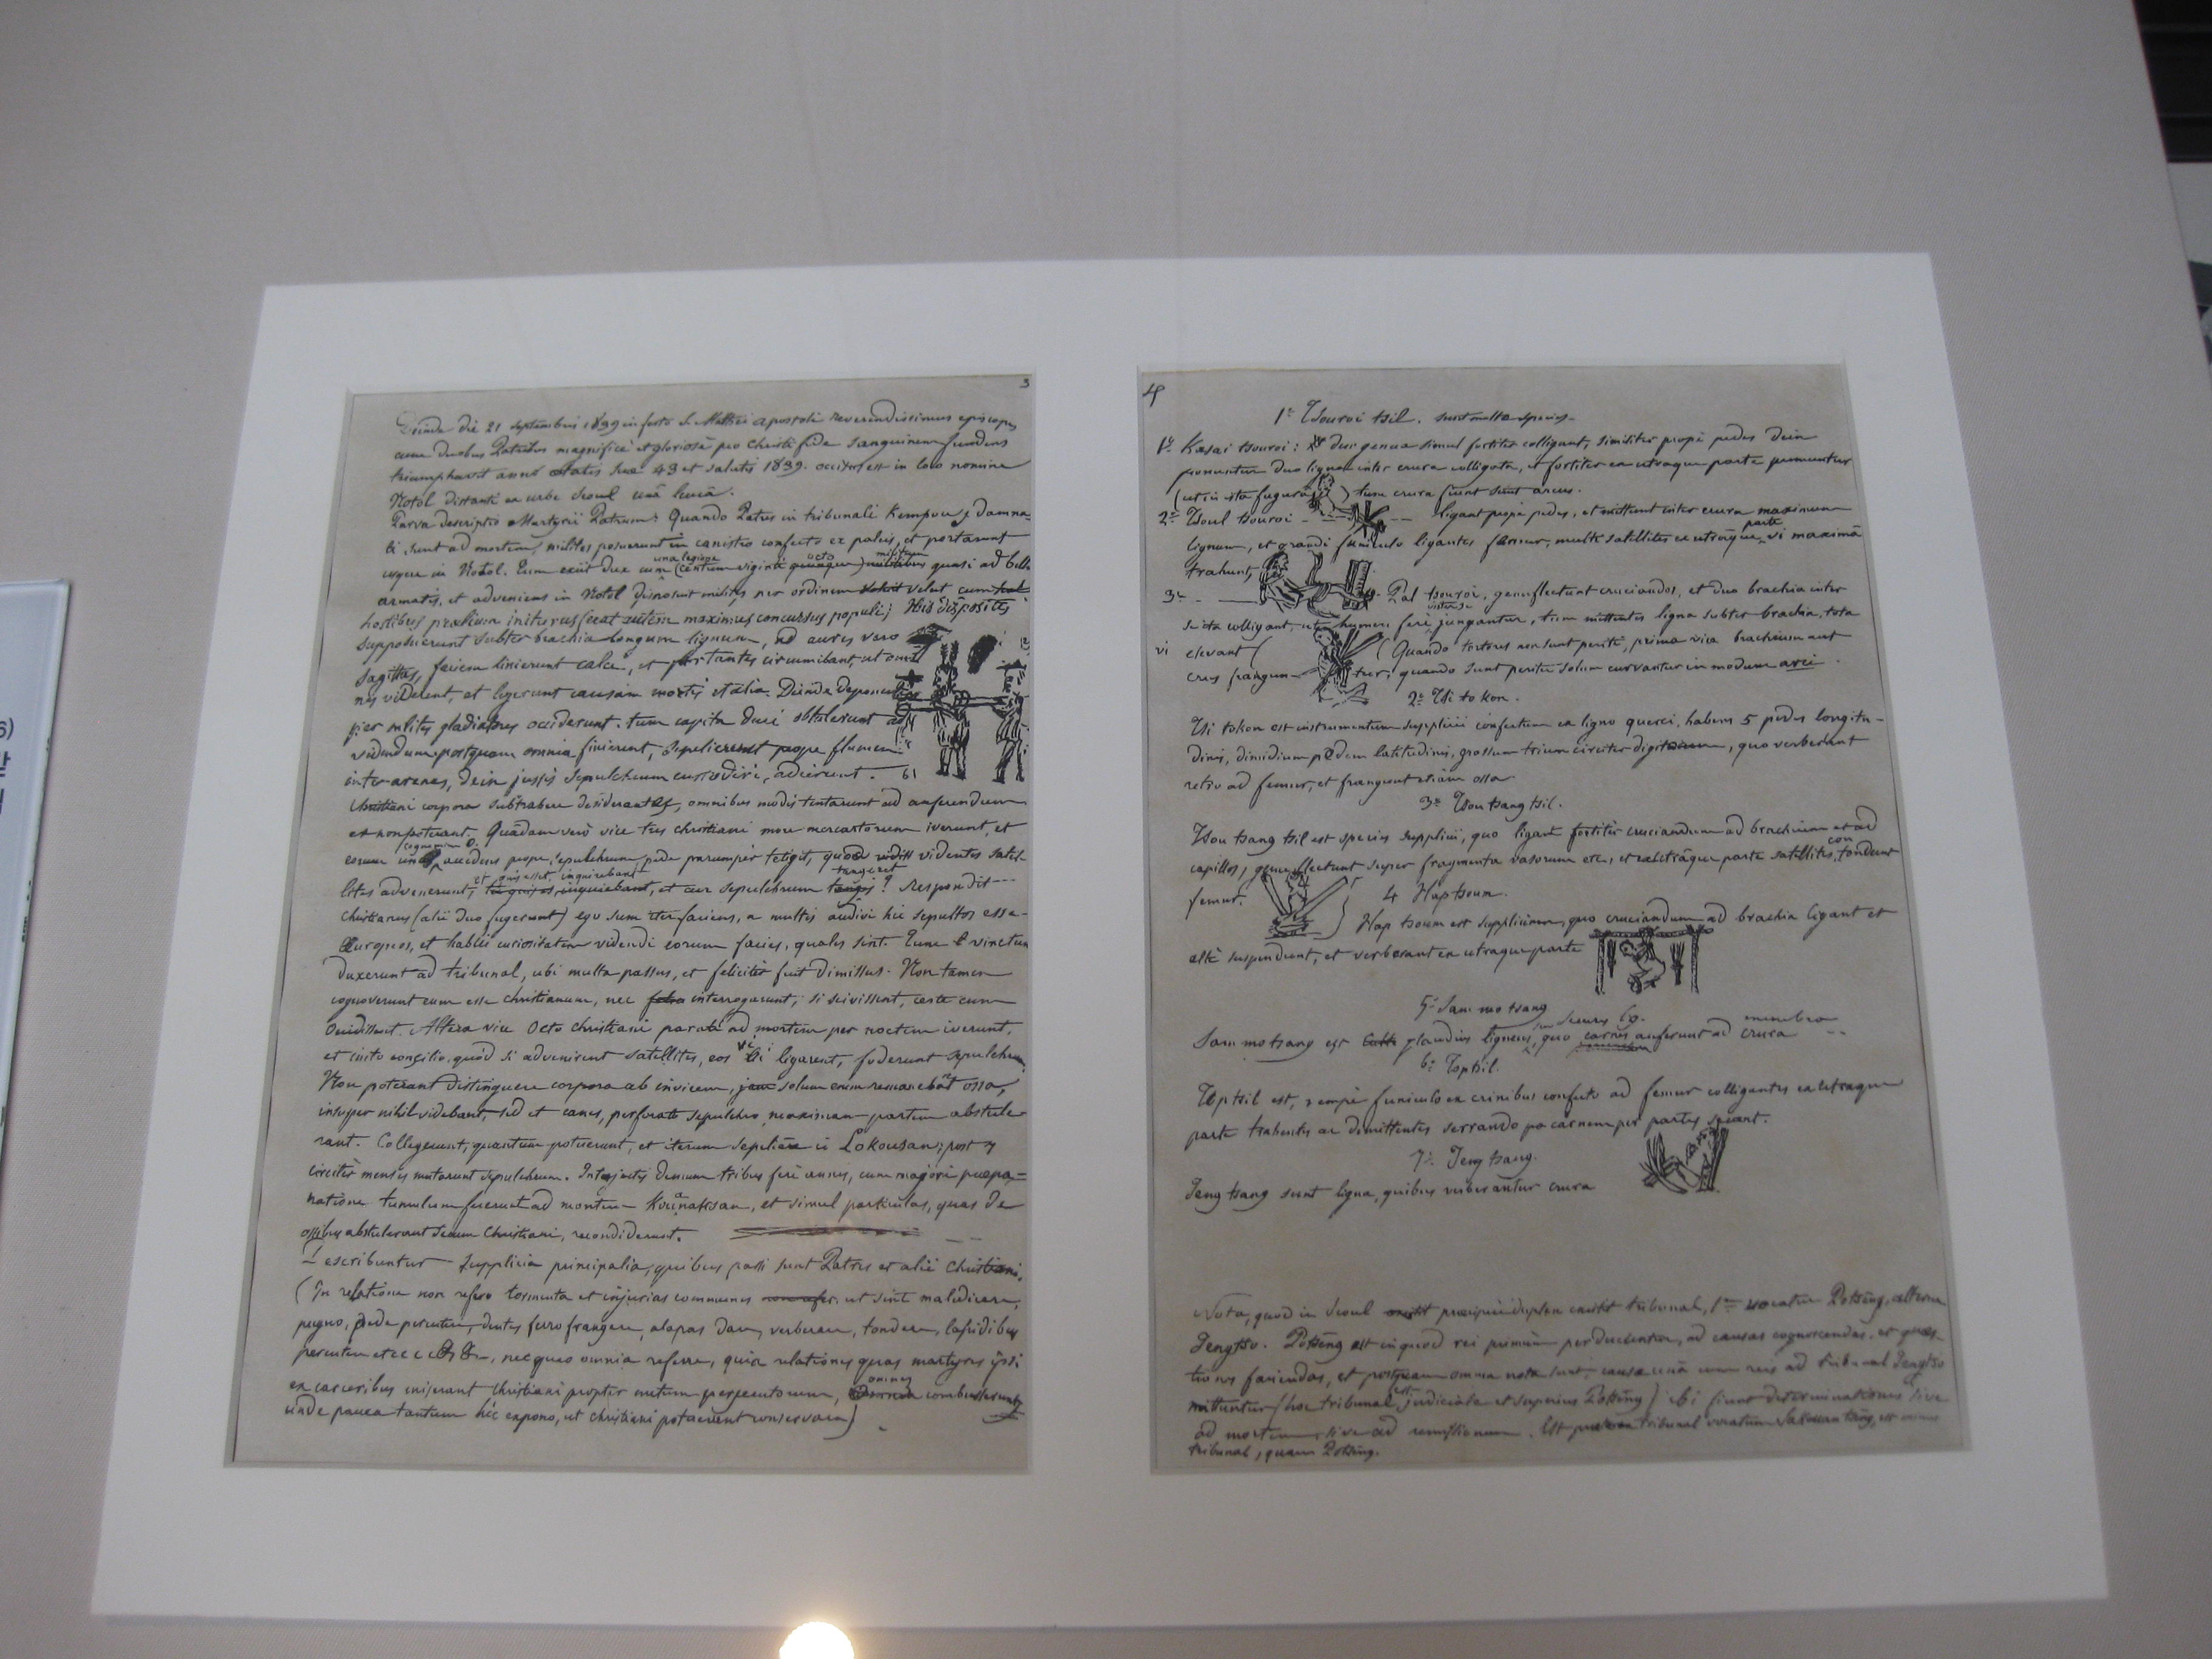 3
Deinde die 21 septembris 1839 in festo S. Matthæi apostoli Reverendissimus episcopus
cum duobus Patribus magnificè et gloriosè pro Christi fide sanguinem fundens
triumphavit anno ætatis suæ 43 et salutis 1839. occisus est in loco nomine
Notol distanti ex urbe Seoul unâ leucâ.
Parva descriptio Martyrii Patrum: Quando Patres in tribunali Kempou damna-
ti sunt ad mortem, milites posuerunt in canistro confecto ex paleis, et portarunt
usque in Notol. Eum exiit dux cum una legione (centum viginti octo militum quasi ad bella
armatis, et adveniens in Notol disposuit milites per ordinem velut cum
hostibus prælium initurus (erat autem maximus concursus populi; His dispositis
supposuerunt subter brachia longum lignum, ad aures vero
sagittas, faciem linierunt calce, et portantes circumibant, ut om
nes viderent, et legerunt causam mortis et alia. Deinde deponentes
per milites gladiatores occiderunt. tum capita duci obtulerunt ad
videndum. postquam omnia finierunt, sepelierunt prope flumen
inter arenas, dein jussis sepulchrum custodiri, adierunt.
Christiani corpora subtrahere desiderantes, omnibus modis tentarunt ad auferendum
et non poterant. Quâdam verò vice tres christiani more mercatorum iverunt, et
eorum unus cognomine accedens prope sepulchrum pede parumper tetigit, quod videntes satel-
lites advenerunt, et quis esset inquirebant, et cur sepulchrum tangeret? Respondit---
Christianus (alii duo fugerunt) ego sum iter faciens, a multis audivi hic sepultos esse-
Europeos, et habui curiositatem videndi eorum facies, quales sint. Tunc vinctum
duxerunt ad tribunal, ubi multa passus, et feliciter fuit dimissus. Non tamen
cognoverunt eum esse christianum, nec interrogarunt; si scivissent, certe eum
occidissent. Altera vice Octo christiani parati ad mortem per noctem iverunt,
et inito consilio, quòd si advenirent satellites, eos vi ligarent, foderunt sepulchrum
Non poterant distinguere corpora ab invicem, solum enim remanebant ossa,
insuper nihil videbant, sed et canes, perforato sepulchro maximam partem abstule
rant. Collegerunt, quantum potuerunt, et iterum sepeliere in Lokousan; post
circiter menses mutarunt sepulchrum. Interjectis demum tribus ferè annis, cum majori præpa=
ratione tumulum fuerunt ad montem Kouanaksan, et simul particulas, quas de
ossibus abstulerant secum Christiani, recondiderunt.
Describuntur Supplicia principalia, quibus passi sunt Patres et alii Christiani.
(In relatione non refero tormenta et injurias communes ut sint maledicere,
pugno, pede percutere, dentes ferro frangere, alapas dare, verberare, tondere, lapidibus
percutere etc, nequeo omnia referre, quia relationes quas martyres ipsi
ex carceribus miserant Christiani propter metum persecutorum, omnes combusserunt,
unde pauca tantum hic expono, ut christiani potuerunt conservare)
4
1º Tsouroi tsil. sunt multæ species-
1º. Kasai tsouroi: duo genua simul fortiter colligant, similiter propè pedes dein
ponuntur duo ligna inter crura colligata, et fortiter ex utraque parte premuntur
(ut in ista figurâ) tum crura fiunt sicut arcus.
2º Tsoul tsouroi --- ligant prope pedes, et mittunt inter crura maximum
lignum, et grandi funiculo ligantes femur, multi satellites ex utrâque parte vi maximâ
trahunt,
3º --- Pal tsouroi, genuflectunt cruciandos, et duo brachia inter
se ita colligant, ut humeri ferè inter se jungantur, tum mittentes ligna subter brachia, tota
vi elevant (Quando tortores non sunt periti, prima vice brachium aut
crus frangun-tur, quando sunt periti solum curvantur in modum arci.
2º Tsi to kon.
Tsi tokon est instrumentum supplicii confectum ex ligno querci, habens 5 pedes longitu-
dinis, dimidium pedem latitudinis, grossum trium circiter digitorum, quo verberant
retro ad femur, et frangunt etiam ossa.
3º Tsou tsang tsil.
Tsou tsang tsil est species supplicii, quo ligant fortiter cruciandum ad brachium et ad
capillos, genuflectunt super fragmenta vasorum etc, et ex utrâque parte satellites contondunt
femur.
4 Hap tsoum.
Hap tsoum est supplicium, quo cruciandum ad brachia ligant et
altè suspendunt, et verberant ex utraque parte
5º Sam mo tsang
Sam mo tsang est gladius ligneus, quo carnes auferunt ad membra crura
6º Toptsil.
Toptsil est, sæpè funiculo ex crinibus confecto ad femur colligantes ex utraque
parte trahentes ac demittentes serrando per carnem per partes secant.
7º. Teng tsang.
Teng tsang sunt ligna, quibus verberantur crura
Nota, quod in Seoul præcipuè duplex tribunal, 1um vocatur Potseng, alterum
Sengtso. Potseng est in quod rei primum perducuntur, ad causas cognoscendas, et quæs-
tiones faciendas, et postquam omnia nota sunt, causa unâ cum reis ad tribunal Sengtso
mittuntur (hoc tribunal est judiciale et superius Potseng) ibi fiunt determinationes sive
ad mortem, sive ad remissionem. Est tribunal vocatum
tribunal, quam Potseng.